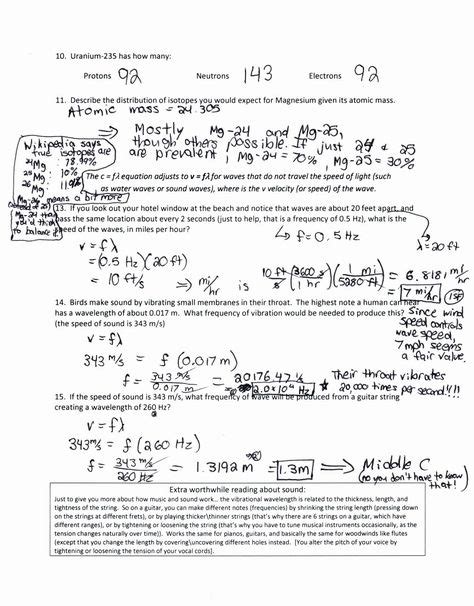 10. Uranium-235 has how many:
Protons 92 Neutrons 143 Electrons 92
11. Describe the distribution of isotopes you would expect for Magnesium given its atomic mass.
Atomic mass = 24.305
→ Mostly Mg-24 and Mg-25,
though others possible. If just 24 & 25
are prevalent, Mg-24 = 70%, Mg-25 = 30%
Wikipedia says
true isotopes are
24Mg : 78.99%
25Mg : 10%
26Mg : 11.01%
Mg-26 means a bit more
Mg-24 than
you'd think
to balance it
The c = fλ equation adjusts to v = fλ for waves that do not travel the speed of light (such
as water waves or sound waves), where is the v velocity (or speed) of the wave.
13. If you look out your hotel window at the beach and notice that waves are about 20 feet apart, and
pass the same location about every 2 seconds (just to help, that is a frequency of 0.5 Hz), what is the
speed of the waves, in miles per hour?
↳ f = 0.5 Hz
λ = 20 ft
v = fλ
= (0.5 Hz)(20 ft)
= 10 ft/s → mi/hr is 10 ft/s (3600 s/1 hr)(1 mi/5280 ft) = 6.8181 mi/hr
= 7 mi/hr (1SF)
14. Birds make sound by vibrating small membranes in their throat. The highest note a human can hear
has a wavelength of about 0.017 m. What frequency of vibration would be needed to produce this?
(the speed of sound is 343 m/s)
Since wind
speed controls
wave speed,
7mph seems
a fair value.
v = fλ
343 m/s = f (0.017 m)
f = 343 m/s / 0.017 m = 20176.47 1/s
2.0×10⁴ Hz
★ Their throat vibrates
20,000 times per second!!!
15. If the speed of sound is 343 m/s, what frequency of wave will be produced from a guitar string
creating a wavelength of 260 Hz?
v = fλ
343 m/s = f (260 Hz)
f = 343 m/s / 260 Hz = 1.3192 m = 1.3 m ⇒ Middle C
(no you don't have to know
that!)
Extra worthwhile reading about sound:
Just to give you more about how music and sound work.. the vibrational wavelength is related to the thickness, length, and
tightness of the string. So on a guitar, you can make different notes (frequencies) by shrinking the string length (pressing down
on the strings at different frets), or by playing thicker\thinner strings (that's why there are 6 strings on a guitar, which have
different ranges), or by tightening or loosening the string (that's why you have to tune musical instruments occasionally, as the
tension changes naturally over time)). Works the same for pianos, guitars, and basically the same for woodwinds like flutes
(except that you change the length by covering\uncovering different holes instead. [You alter the pitch of your voice by
tightening or loosening the tension of your vocal cords].